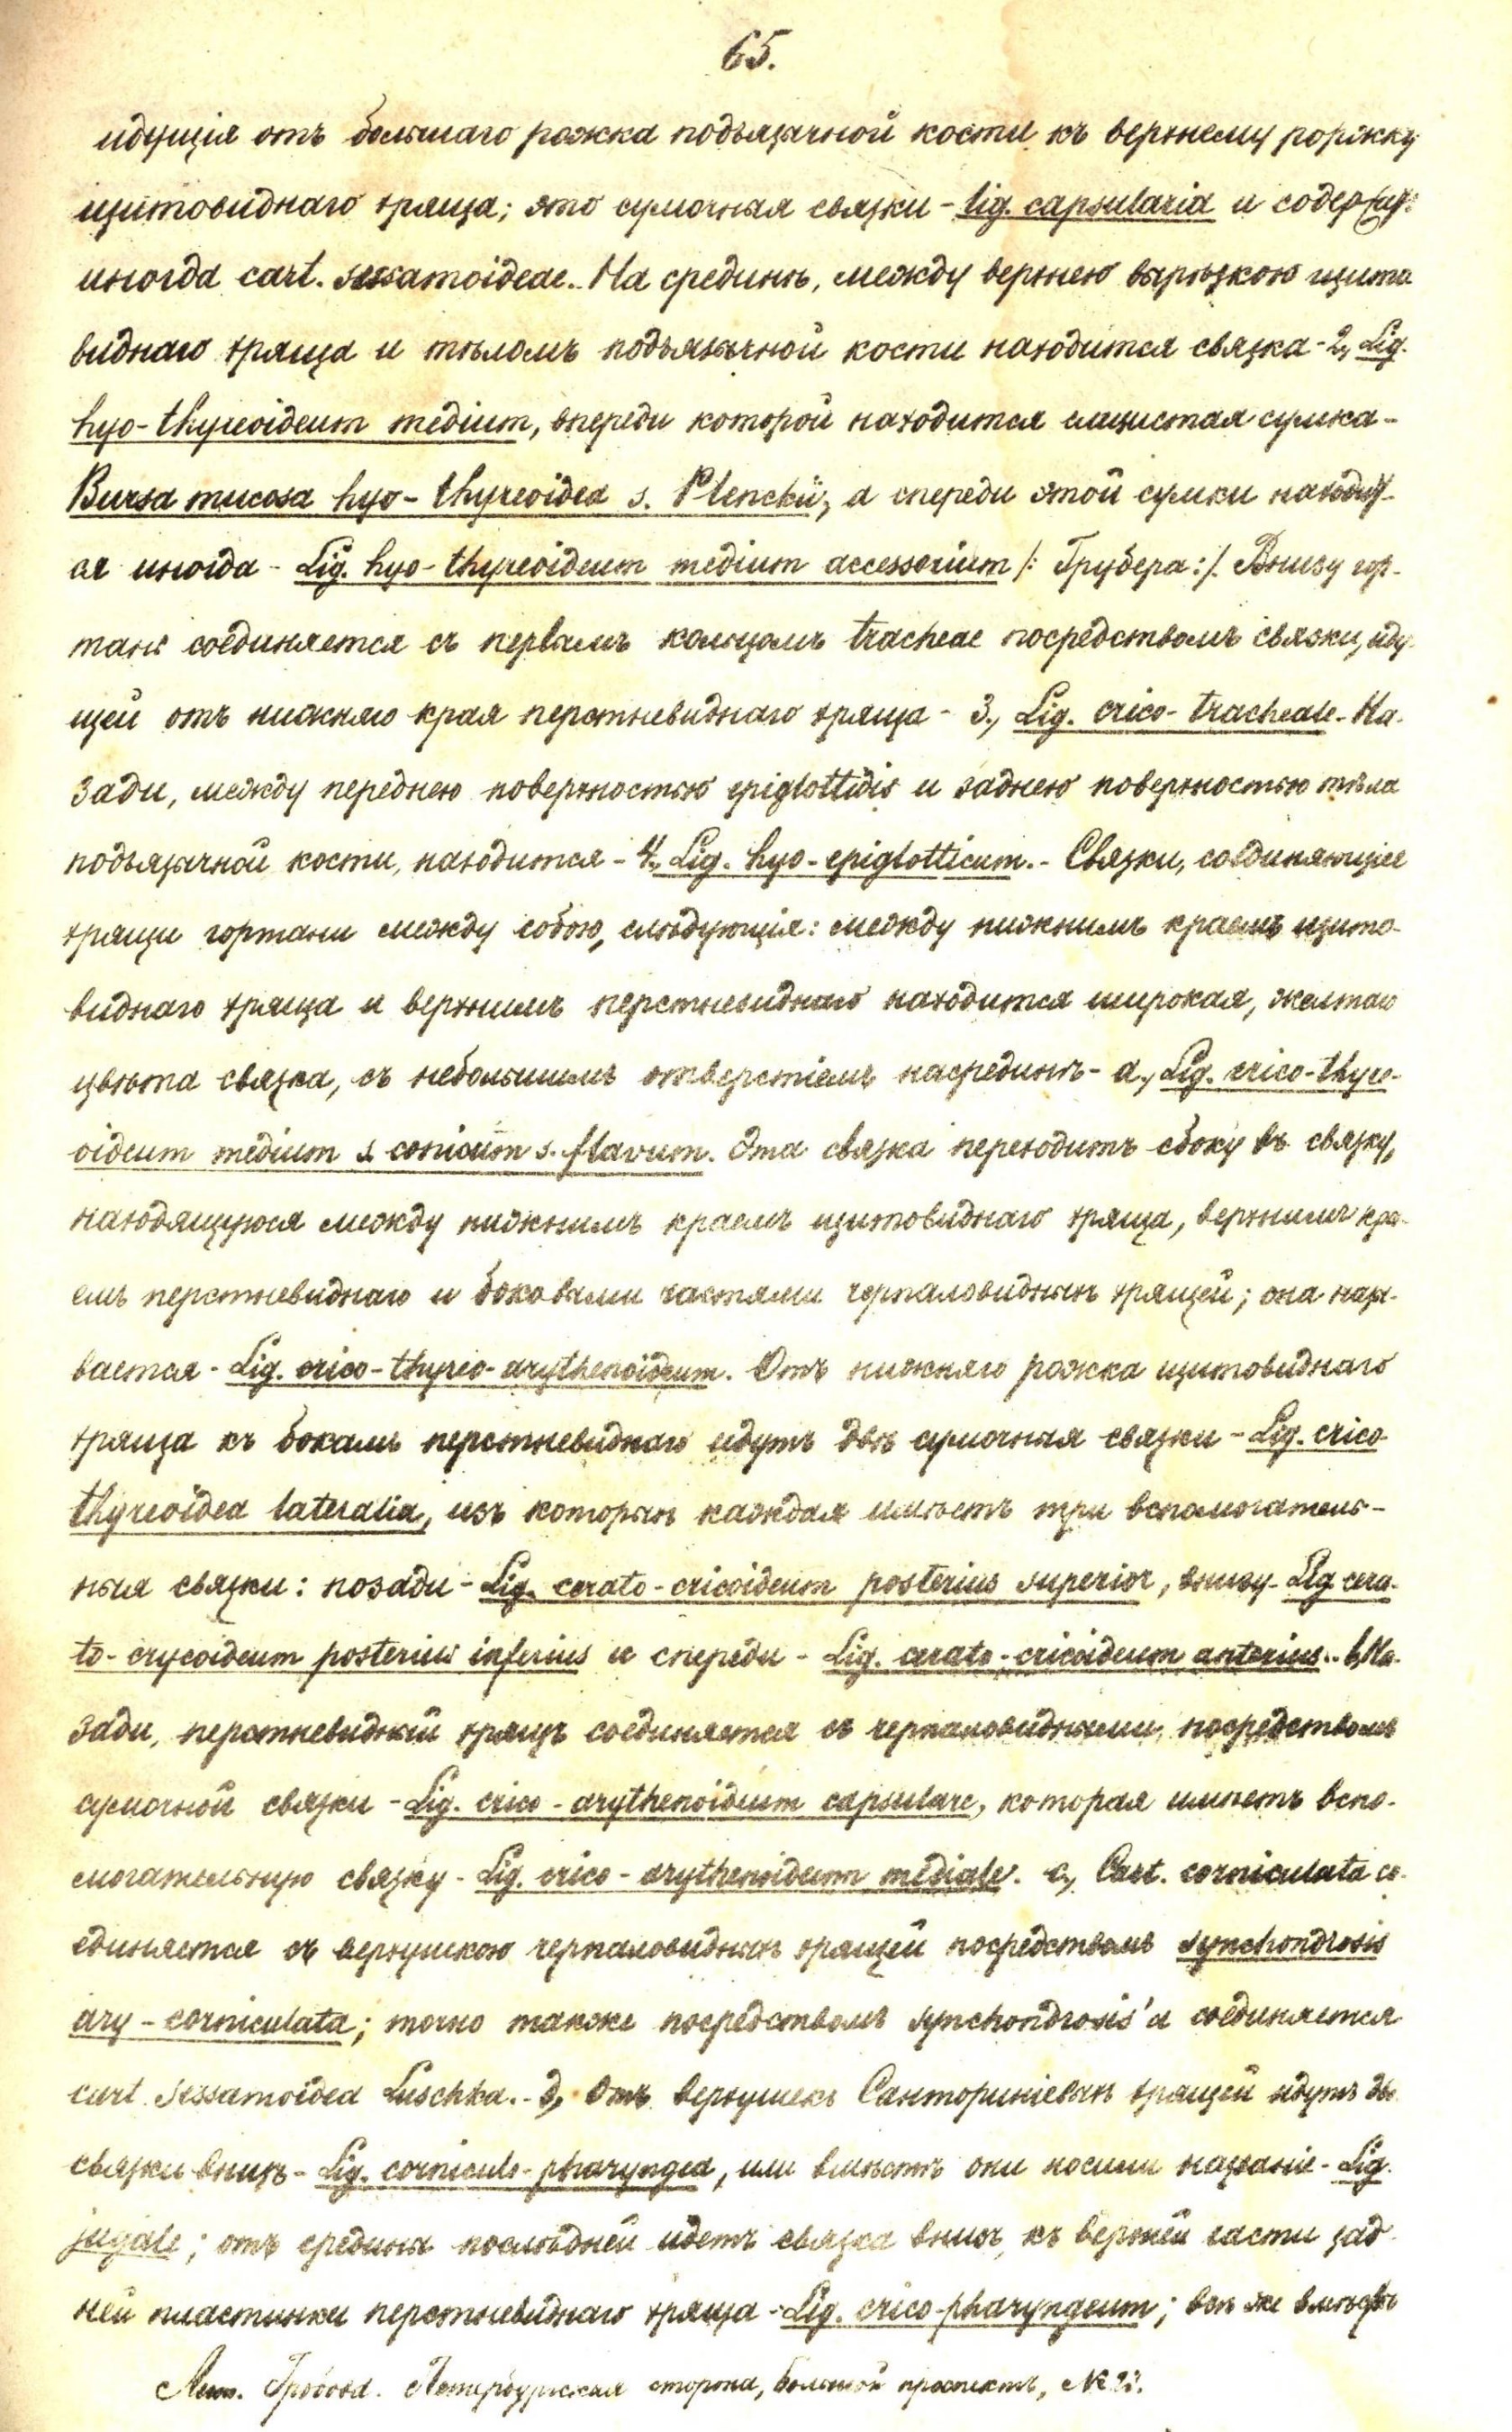 65.
идущія отъ большаго рожка подъязычной кости къ верхнему рожку
щитовиднаго хряща; это сумочныя связки - lig. capsularia и содерж.
иногда cart. sesamoideae. На срединѣ, между верхнею вырѣзкою щито
виднаго хряща и тѣломъ подъязычной кости находится связка - 2, Lig.
hyo-thyreoideum medium, впереди которой находится слизистая сумка -
Bursa mucosa hyo-thyreoidea s. Plenckii, а спереди этой сумки находит-
ся иногда - Lig. hyo-thyreoideum medium accessorium /: Грубера :/. Внизу гор-
тань соединяется съ первымъ кольцомъ tracheae посредствомъ связки, иду-
щей отъ нижняго края перстневиднаго хряща - 3., Lig. crico-tracheale. - На-
зади, между переднею поверхностью epiglottidis и заднею поверхностью тѣла
подъязычной кости, находится - 4., Lig. hyo-epiglotticum. - Связки, соединяющіе
хрящи гортани между собою, слѣдующія: между нижнимъ краемъ щито-
виднаго хряща и верхнимъ перстневиднаго находится широкая, желтаго
цвѣта связка, съ небольшимъ отверстіемъ насрединѣ - a., Lig. crico-thyre-
oideum medium s. conicum s. flavum. Эта связка переходитъ сбоку въ связку,
находящуюся между нижнимъ краемъ щитовиднаго хряща, верхнимъ кра-
емъ перстневиднаго и боковыми частями черпаловидныхъ хрящей; она назы-
вается - Lig. crico-thyreo-arythenoideum. Отъ нижняго рожка щитовиднаго
хряща къ бокамъ перстневиднаго идутъ двѣ сумочныя связки - Lig. crico
thyreoidea lateralia, изъ которыхъ каждая имѣетъ три вспомогатель-
ныя связки: позади - Lig. cerato-cricoideum posterius superior, внизу - Lig. cera-
to-crycoideum posterius inferius и спереди - Lig. cerato-cricoideum anterius. - b, На-
зади, перстневидный хрящъ соединяется съ черпаловидными, посредствомъ
сумочной связки - Lig. crico-arythenoideum capsulare, которая имѣетъ вспо-
могательную связку - Lig. crico-arythenoideum mediale. c, Cart. corniculata со-
единяется съ верхушкою черпаловидныхъ хрящей посредствомъ synchondrosis
ary-corniculata; точно также посредствомъ synchondrosis'а соединяется
cart. sessamoidea Luschka. - d, Отъ верхушекъ Санториніевыхъ хрящей идутъ двѣ
связки внизъ - Lig. corniculo-pharyngea, или вмѣстѣ они носили названіе - Lig.
jugale; отъ средины послѣдней идетъ связка внизъ, къ верхней части зад-
ней пластинки перстневиднаго хряща - Lig. crico-pharyngeum; всѣ же вмѣстѣ
Лит. Гробова. Петербургская сторона, Большой проспектъ, №